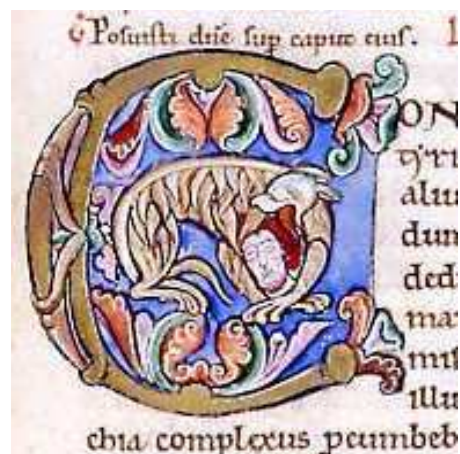 Posuisti dñe sup caput eius.
CON
aliu
dum
dedi
ma
mis
illu
chia complexus pcumbeb